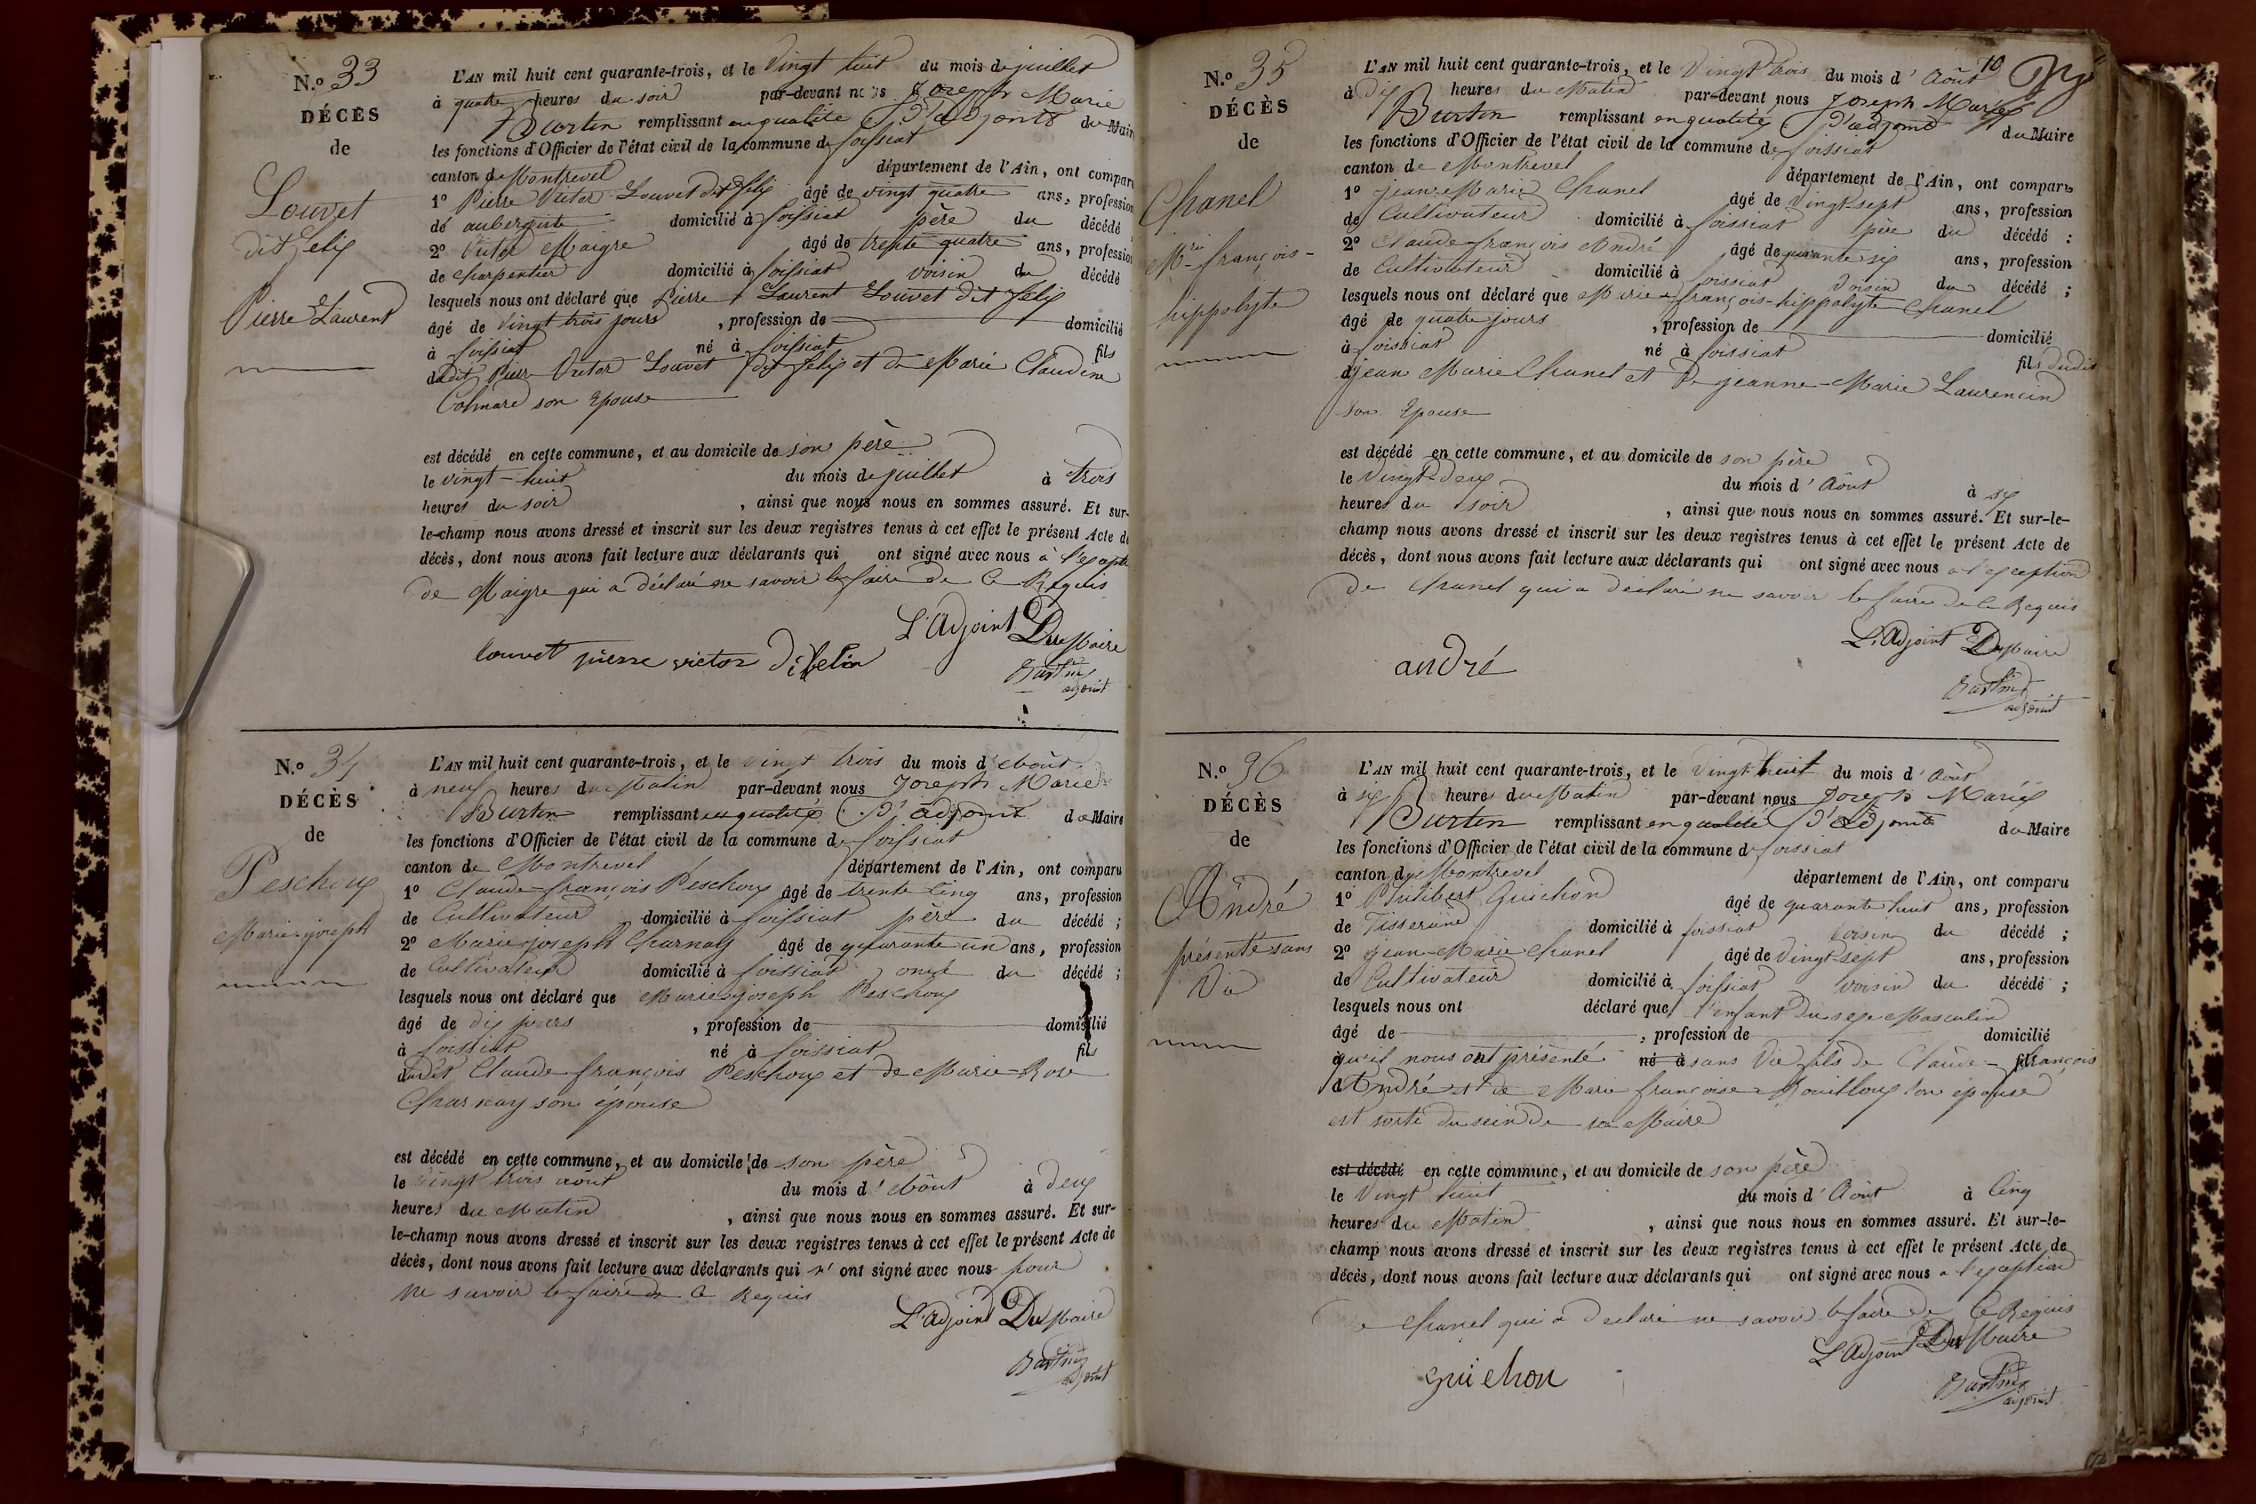 N.o 33
DÉCÈS
de
Louvet
dit Felix
Pierre Laurent
L'AN mil huit cent quarante-trois, et le vingt huit du mois de juillet
à quatre heures du soir par-devant nous Joseph Marie
Burtin remplissant en qualité d'adjoint du Maire
les fonctions d'Officier de l'état civil de la commune de foissiat
canton de Montrevel département de l'Ain, ont comparu
1o Pierre Victor Louvet dit Felix âgé de vingt quatre ans, profession
de aubergiste domicilié à foissiat père du décédé ;
2o Victor Maigre âgé de trente quatre ans, profession
de charpentier domicilié à foissiat voisin du décédé
lesquels nous ont déclaré que Pierre Laurent Louvet dit Felix
âgé de vingt trois jours , profession de domicilié
à foissiat né à foissiat fils
dudit Pierre Victor Louvet dit felix et de Marie Claudine
Colmard son épouse
est décédé en cette commune, et au domicile de son père
le vingt-huit du mois de juillet à trois
heures du soir , ainsi que nous nous en sommes assuré. Et sur-
le-champ nous avons dressé et inscrit sur les deux registres tenus à cet effet le présent Acte de
décès, dont nous avons fait lecture aux déclarants qui ont signé avec nous à l'exception
de Maigre qui a déclaré ne savoir le faire de ce Requis
L'Adjoint Du Maire
louvet pierre victor di felix
Burtin
adjoint
N.o 34
DÉCÈS
de
Peschoux
Marie-joseph
L'AN mil huit cent quarante-trois, et le vingt trois du mois d'Août
à neuf heures du Matin par-devant nous Joseph Marie
Burtin remplissant en qualité d'adjoint du Maire
les fonctions d'Officier de l'état civil de la commune de foissiat
canton de Montrevel département de l'Ain, ont comparu
1o Claude-françois Peschoux âgé de trente cinq ans, profession
de Cultivateur domicilié à foissiat père du décédé ;
2o Marie-joseph Charnay âgé de quarante un ans, profession
de Cultivateur domicilié à foissiat oncle du décédé ;
lesquels nous ont déclaré que Marie-joseph Peschoux
âgé de dix jours , profession de domicilié
à foissiat né à foissiat fils
dudit Claude-françois Peschoux et de Marie-Rose
Charnay son épouse
est décédé en cette commune, et au domicile de son père
le vingt trois août du mois d'Août à deux
heures du Matin , ainsi que nous nous en sommes assuré. Et sur-
le-champ nous avons dressé et inscrit sur les deux registres tenus à cet effet le présent Acte de
décès, dont nous avons fait lecture aux déclarants qui n'ont signé avec nous pour
ne savoir le faire de ce Requis
L'Adjoint Du Maire
Burtin
adjoint
10
N.o 35
DÉCÈS
de
Chanel
M.rie françois-
hippolyte
L'AN mil huit cent quarante-trois, et le vingt trois du mois d'Août
à dix heures du Matin par-devant nous Joseph Marie
Burtin remplissant en qualité d'adjoint du Maire
les fonctions d'Officier de l'état civil de la commune de foissiat
canton de Montrevel département de l'Ain, ont comparu
1o jean-Marie Chanel âgé de vingt-sept ans, profession
de Cultivateur domicilié à foissiat père du décédé ;
2o Claude-françois André âgé de quarante six ans, profession
de Cultivateur domicilié à foissiat voisin du décédé ;
lesquels nous ont déclaré que Marie-françois-hippolyte Chanel
âgé de quatre jours , profession de domicilié
à foissiat né à foissiat fils dudit
jean Marie Chanel et de jeanne-Marie Laurencin
son Epouse
est décédé en cette commune, et au domicile de son père
le vingt-deux du mois d'Août à six
heures du soir , ainsi que nous nous en sommes assuré. Et sur-le-
champ nous avons dressé et inscrit sur les deux registres tenus à cet effet le présent Acte de
décès, dont nous avons fait lecture aux déclarants qui ont signé avec nous à l'exception
de Chanel qui a déclaré ne savoir le faire de ce Requis
L'Adjoint Du Maire
andré
Burtin
adjoint
N.o 36
DÉCÈS
de
André
présenté sans
Vie
L'AN mil huit cent quarante-trois, et le vingt huit du mois d'Août
à six heures du Matin par-devant nous Joseph Marie
Burtin remplissant en qualité d'adjoint du Maire
les fonctions d'Officier de l'état civil de la commune de foissiat
canton de Montrevel département de l'Ain, ont comparu
1o Philibert Guichon âgé de quarante huit ans, profession
de Tisserand domicilié à foissiat voisin du décédé ;
2o jean-Marie Chanel âgé de vingt sept ans, profession
de Cultivateur domicilié à foissiat voisin du décédé ;
lesquels nous ont déclaré que l'enfant du sexe Masculin
âgé de , profession de domicilié
qu'il nous ont présenté né à sans Vie fils de Claude-françois
André et de Marie françoise Bouilloux son épouse
est sorti du sein de sa Mère
est décédé en cette commune, et au domicile de son père
le vingt huit du mois d'Août à cinq
heures du Matin , ainsi que nous nous en sommes assuré. Et sur-le-
champ nous avons dressé et inscrit sur les deux registres tenus à cet effet le présent Acte de
décès, dont nous avons fait lecture aux déclarants qui ont signé avec nous à l'exception
de Chanel qui a déclaré ne savoir le faire de ce Requis
L'Adjoint Du Maire
guichon
Burtin
adjoint